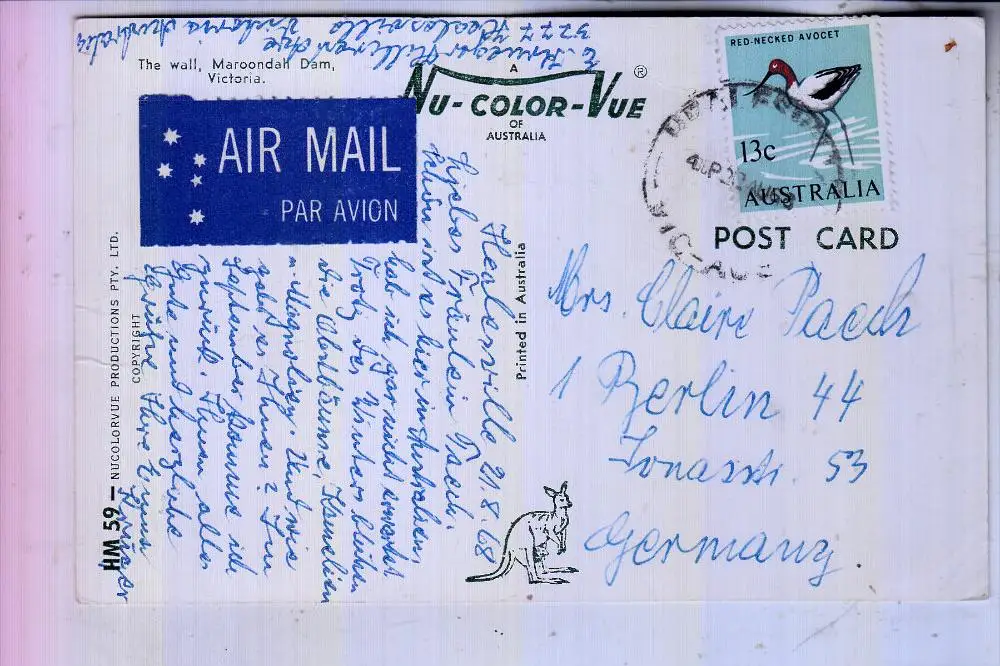 E. Krueger
3777 Healesville
Victoria Australia
The wall, Maroondah Dam,
Victoria.
A
NU-COLOR-VUE ®
OF
AUSTRALIA
AIR MAIL
PAR AVION
RED-NECKED AVOCET
13c
AUSTRALIA
POST CARD
Healesville 21.8.68
Liebes Fräulein Paech.
Schön ist es hier in Australien,
hab ich gar nicht erwartet
Trotz des Winters blühen
die Obstbäume, Kamelien
u. Magnolien. Und wie
geht es Ihnen? Im
September komme ich
zurück. Ihnen alles
Gute und herzliche
Grüße Ihre Erna
Krüger
Printed in Australia
HM 59 – NUCOLORVUE PRODUCTIONS PTY. LTD.
COPYRIGHT
Mrs. Claire Paech
1 Berlin 44
Jonasstr. 53
Germany